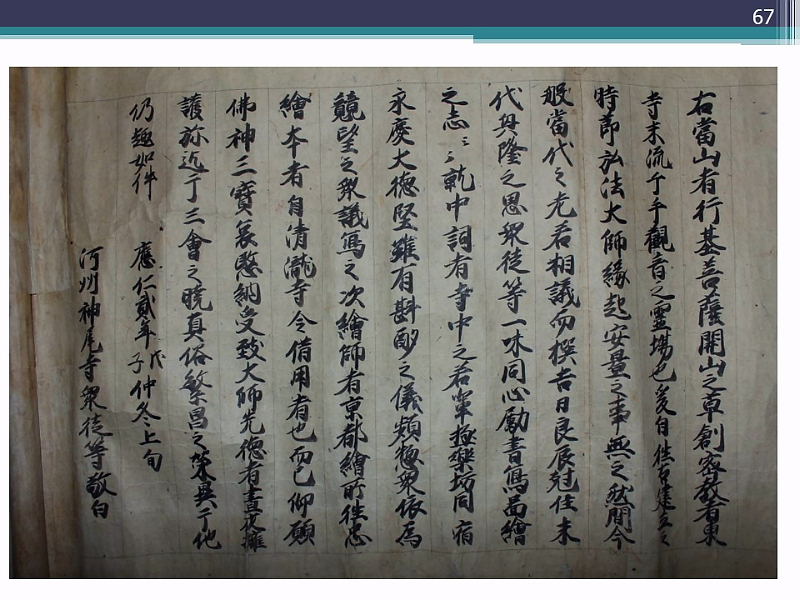 67
右當山者行基菩薩開山之草創密教者東
寺末流千手觀音之靈場也爰自往古建立之
時節弘法大師縁起安置之事無之然間今
般當代之老若相議而撰吉日良辰冠住未
代興隆之思衆徒等一味同心勵書寫畐繪
之志ミミ就中詞者寺中之若輩極樂坊同宿
永慶大德堅雖有斟酌之儀類惣衆依爲
競望之衆議寫之次繪師者京都繪所往忠
繪本者自清瀧寺令借用者也而已仰願
佛神三寶哀愍納受致大師先德者晝夜擁
護弥近丁三會之曉真俗繁昌之榮興于他
仍趣如件
應仁貳年戊子仲冬上旬
河州神尾寺衆徒等敬白